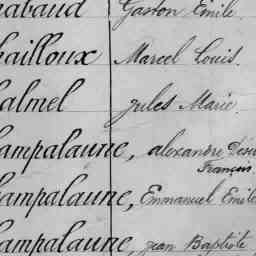 abaud Gaston Emile.
hailloux Marcel Louis.
almel Jules Marie
ampalaune, alexandre Dési
François
ampalaune, Emmanuel Emile
ampalaune, jean Baptiste